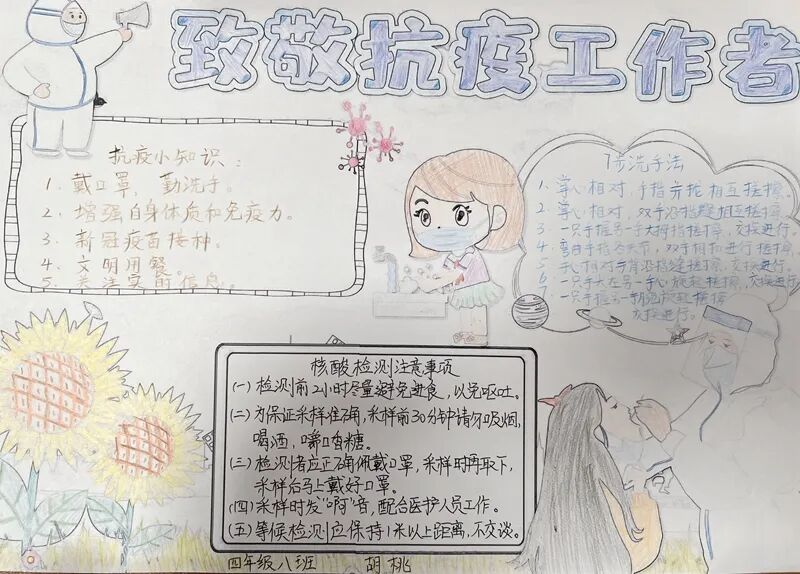 致敬抗疫工作者
抗疫小知识：
1. 戴口罩，勤洗手。
2. 增强自身体质和免疫力。
3. 新冠疫苗接种。
4. 文明用餐。
5. 关注实时信息。
7步洗手法
1. 掌心相对，手指并拢相互搓擦。
2. 掌心相对，双手沿指缝相互搓擦。
3. 一只手握另一手大拇指搓擦，交换进行。
4. 弯曲手指各关节，双手相扣进行搓擦。
5. 手心相对手背沿指缝搓擦，交换进行。
6. 一只手在另一手心旋转搓擦，交换进行
7. 一只手握另一旋转搓擦
交换进行。
核酸检测注意事项
(一) 检测前2小时尽量避免进食，以免呕吐。
(二) 为保证采样准确，采样前30分钟请勿吸烟，
喝酒，嚼口香糖。
(三) 检测者应正确佩戴口罩，采样时再取下，
采样后马上戴好口罩。
(四) 采样时发“啊”音，配合医护人员工作。
(五) 等候检测应保持1米以上距离，不交谈。
四年级八班 胡桃